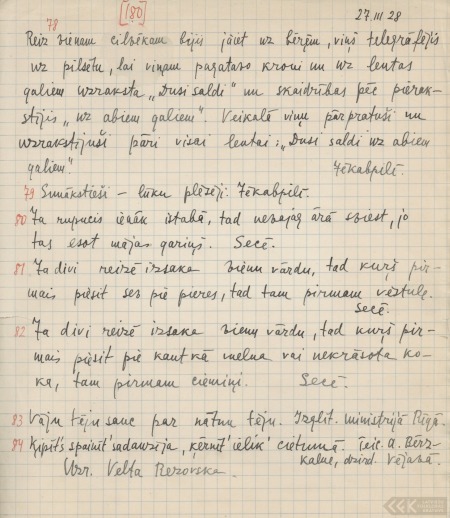 [180]
27.III 28
78
Reiz vienam cilvēkam bijis jāiet uz bērēm, viņš telegrafējis
uz pilsētu, lai viņam pagatavo kroni un uz lentas
galiem uzraksta „Dusi saldi” un skaidrības pēc pierak-
stījis „uz abiem galiem”. Veikalā viņu pārpratuši un
uzrakstījuši pāri visai lentai: „Dusi saldi uz abiem
galiem”. Jēkabpilī.
79 Sunākstieši – lūku plēsēji. Jēkabpilī.
80 Ja rupucis ienāk istabā, tad nevajag ārā sviest, jo
tas esot mājas gariņš. Secē.
81 Ja divi reizē izsaka vienu vārdu, tad kurš pir-
mais piesit sev pie pieres, tad tam pirmam vēstule.
Secē.
82 Ja divi reizē izsaka vienu vārdu, tad kurš pir-
mais piesit pie kaut kā melna vai nekrāsota ko-
ka, tam pirmam ciemiņi. Secē.
83 Vāju tēju sauc par nātnu tēju. Izglīt. ministrijā Rīgā.
84 Ķipīts spainīt' sadauzīja, ķērnīt' ielik' cietumā. Teic. A. Bērz-
kalne, dzird. Vējavā.
Uzr. Velta Rezovska.